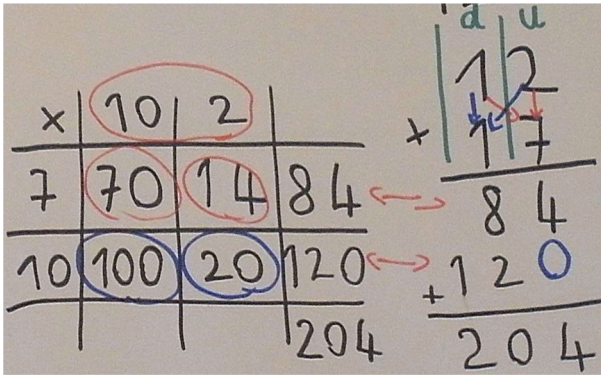 × 10 2
7 70 14 84
10 100 20 120
204
d u
12
× 17
84
+ 120
204